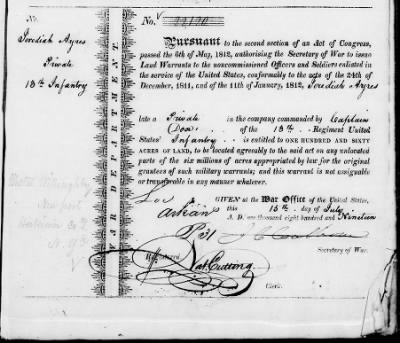 No.
Private
18th Infantry
WAR DEPARTMENT.
No.
Pursuant to the second section of an Act of Congress,
passed the 6th of May, 1812, authorising the Secretary of War to issue
Land Warrants to the noncommissioned Officers and Soldiers enlisted in
the service of the United States, conformably to the acts of the 24th of
December, 1811, and of the 11th of January, 1812, Ayres
late a Private in the company commanded by Captain
of the 18th Regiment United
States' Infantry is entitled to ONE HUNDRED AND SIXTY
ACRES OF LAND, to be located agreeably to the said act on any unlocated
parts of the six millions of acres appropriated by law for the original
grantees of such military warrants; and this warrant is not assignable
or transferable in any manner whatever.
GIVEN at the War Office of the United States,
this 15th day of July
A. D. one thousand eight hundred and Nineteen
J C Calhoun
Secretary of War.
Registered
Nat. Cutting
Clerk.